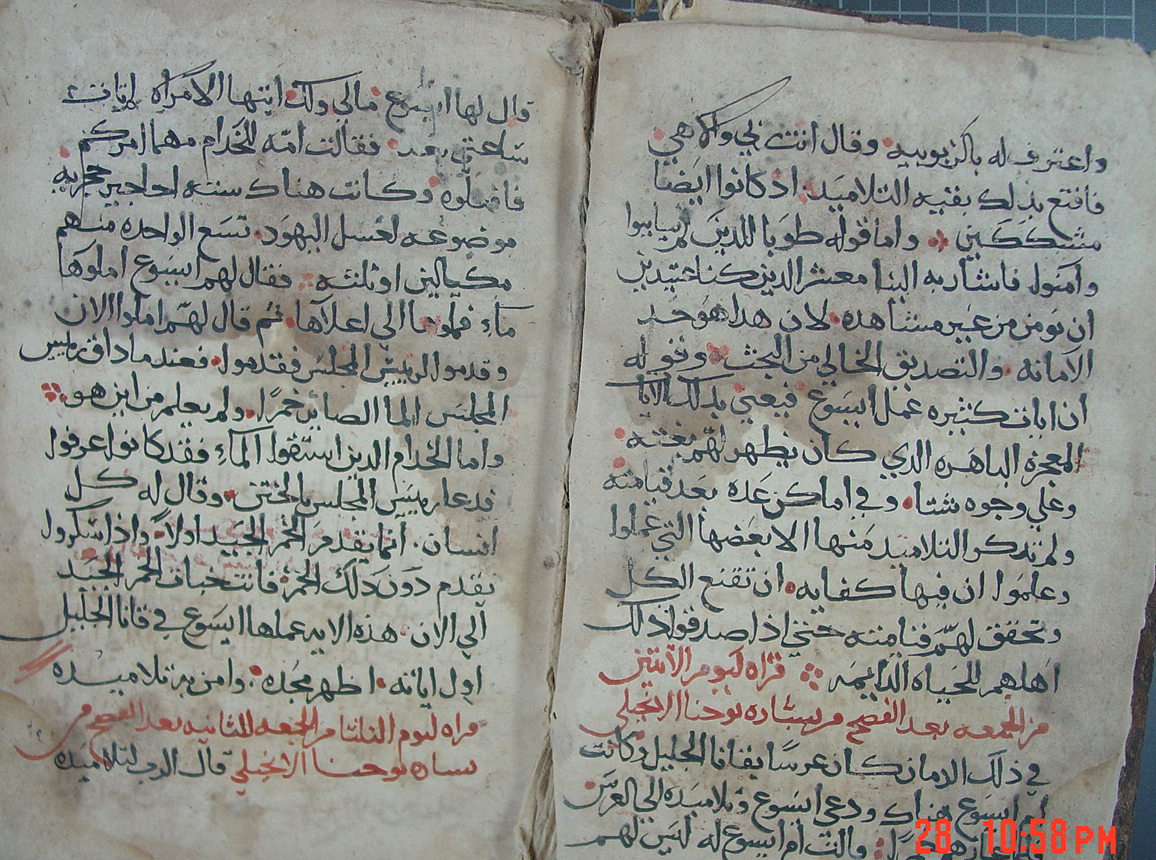 واعترف له بالربوبيه وقال انت ربي والاهي
فاقتنع بذلك بقيه التلاميد اذ كانوا ايضا
متشككين واما قوله طوبا للدين لم يعاينوا
وامنوا فاشار به الينا معشر الدين كنا عتيدين
ان نومن من غير مشاهده لان هدا هو حد
الامانه والتصديق الخالي من البحث وقوله
ان ايات كثيره عمل ايسوع فيعني بدلك الايات
المعجزة الباهره الدي كان يظهر لهم بغته
وعلي وجوه شتا وفي اماكن عده بعد قيامته
ولم تدكر التلاميد منها الا بعضها التي عملوا
وعلموا ان فيها كفايه ان تقنع الكل
وتحقق لهم قيامته حتي اذا صدقوا دلك
اهلهم للحياه الدايمه قراه ليوم الاتنين
من الجمعه بعد الفصح من بشاره يوحنا الانجيلي
في ذلك الزمان كان عرسا بقانا الجليل وكانت
ام ايسوع هناك ودعي ايسوع وتلاميده الي العرس
خمرا قالت ام ايسوع له ليس لهم
28 10:58 PM
قال لها ايسوع مالي ولك ايتها الامراه لم تات
ساعتي بعد فقالت امه للخدام مهما امركم
فافعلوه وكانت هناك سته اجاجين حجريه
موضوعه لغسل اليهود تسع الواحده منهم
مكيالين او تلته فقال لهم ايسوع املوها
ماء فملوها الي اعلاها ثم قال لهم املوا الان
وقدموا لرييس المجلس فقدموا فعند ما داق رييس
المجلس الما الصاير خمرا ولم يعلم من اين هو
واما الخدام الدين استقوا الماء فقد كانوا عرفوا
فدعا رييس المجلس بالختن وقال له كل
انسان انما يقدم الخمر الجيد اولا واذا سكروا
يقدم دون دلك الخمر فانت خبات الخمر الجيد
الي الان هذه الايه عملها ايسوع في قانا الجليل
اول اياته اظهر مجده وامن به تلاميده
قراه ليوم التلتا من الجمعه الثانيه بعد الفصح من
بشاره يوحنا الانجيلي قال الرب لتلاميده